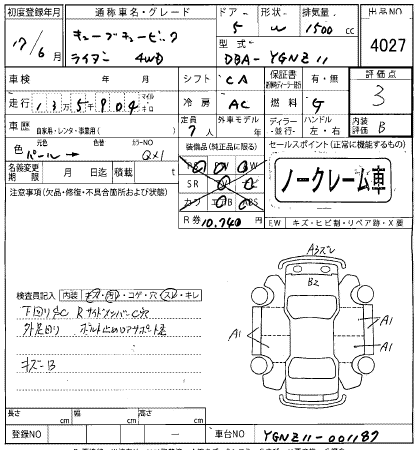 初度登録年月 通称車名・グレード ドア 形状 排気量 出品NO
17/6月 キューブキュービック 5 W 1500cc 4027
ライダー 4WD 型式 DBA-YGNZ11
車検 年 月 シフト CA 保証書 有・無 評価点
走行 135904 マイル キロ 冷房 AC 燃料 G 3
車歴 自家用・レンタ・事業用( ) 定員 7人 外車モデル 年 ディーラー・並行・ ハンドル 左・右 内装評価 B
色 パール→ 元色( ) カラーNO QX1 装備品(純正品に限る) セールスポイント(正常に機能するもの)
名義変更期限 月 日迄 積載 t ノークレーム車
注意事項(欠品・修復・不具合箇所および状態) SR
R券 10,740 EW キズ・ヒビ割・リペア跡・X要
A3ズレ
B2
検査員記入 内装 キズ・汚レ・コゲ・穴・スレ・キレ
下回りC RサイドメンバーC穴
外足回り ボルト止めロアサポート歪
キズ-B
A1 A1
A1
長さ cm 幅 cm 高さ cm
登録NO ー 車台NO YGNZ11-001187